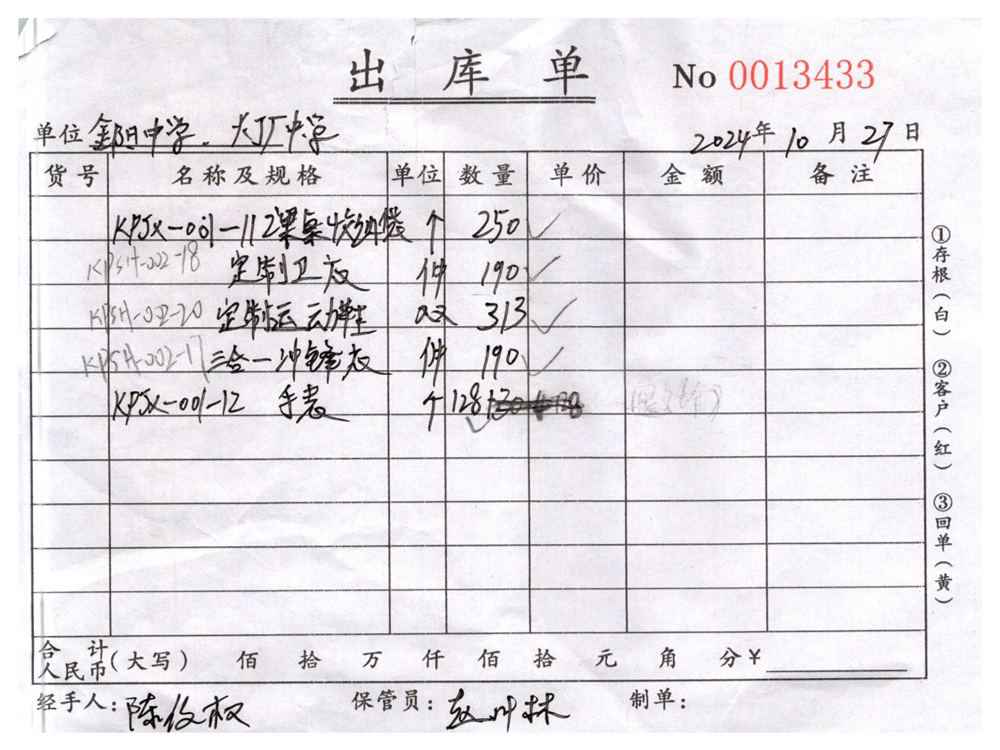 出库单
No 0013433
单位 鄱阳中学. 大厂中学
2024年 10月 27日
货号 名称及规格 单位 数量 单价 金额 备注
KPJX-001-112 课桌收纳袋 个 250 ✓
KPSH-002-18 定制卫衣 件 190 ✓
KPSH-002-20 定制运动鞋 双 313 ✓
KPSH-002-17 三合一冲锋衣 件 190 ✓
KPJX-001-12 手表 个 128 ✓
①存根(白)
②客户(红)
③回单(黄)
合计
人民币(大写) 佰 拾 万 仟 佰 拾 元 角 分 ¥
经手人: 陈俊权 保管员: 赵叶林 制单: